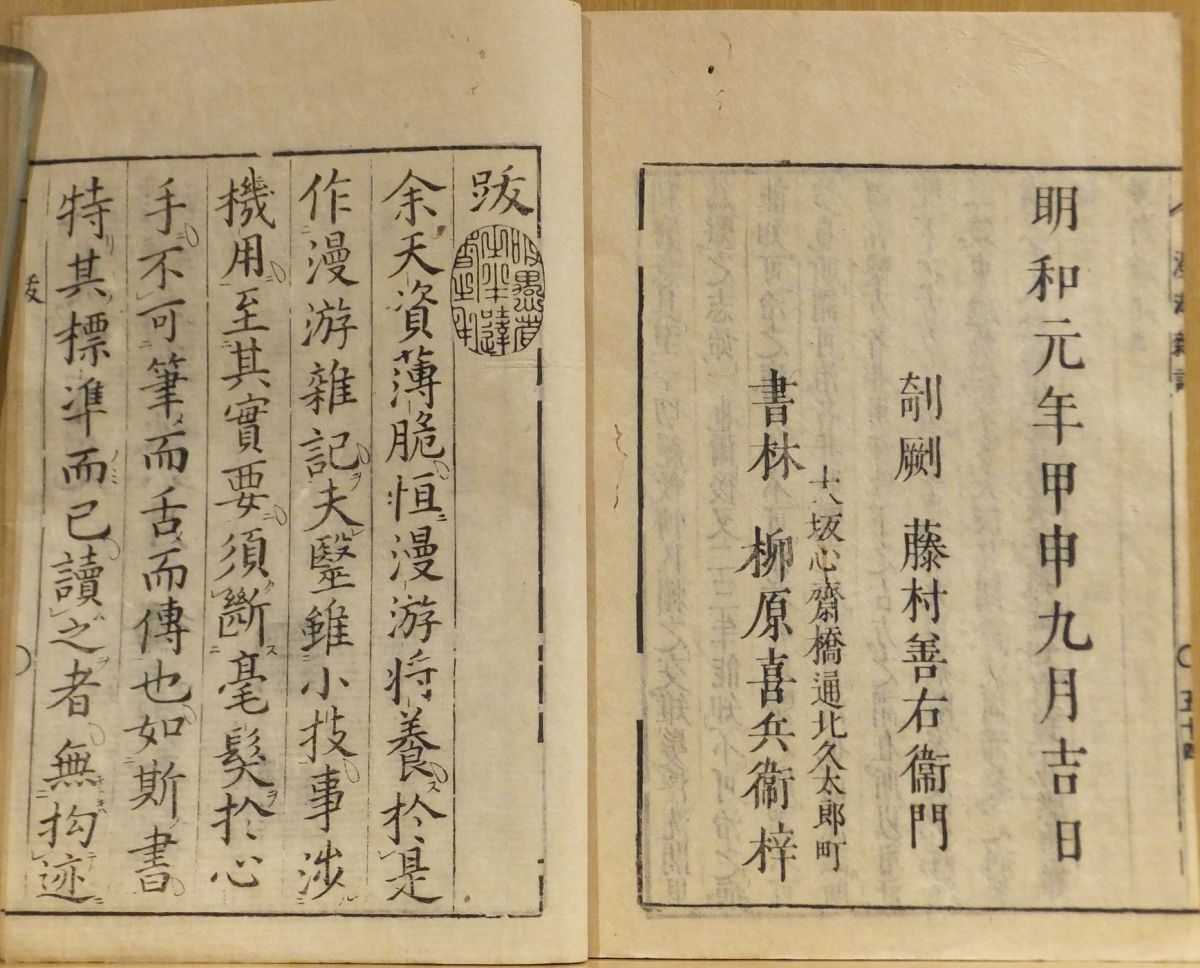 漫游雜記
五十四
明和元年甲申九月吉日
剞劂 藤村善右衞門
大坂心齋橋通北久太郎町
書林 柳原喜兵衞梓
跋
余天資薄脆恒漫游将養於是
作漫游雜記夫毉雖小技事涉
機用至其實要須斷毫髮於心
手不可筆而舌而傳也如斯書
特其標準而已讀之者無拘迹
跋